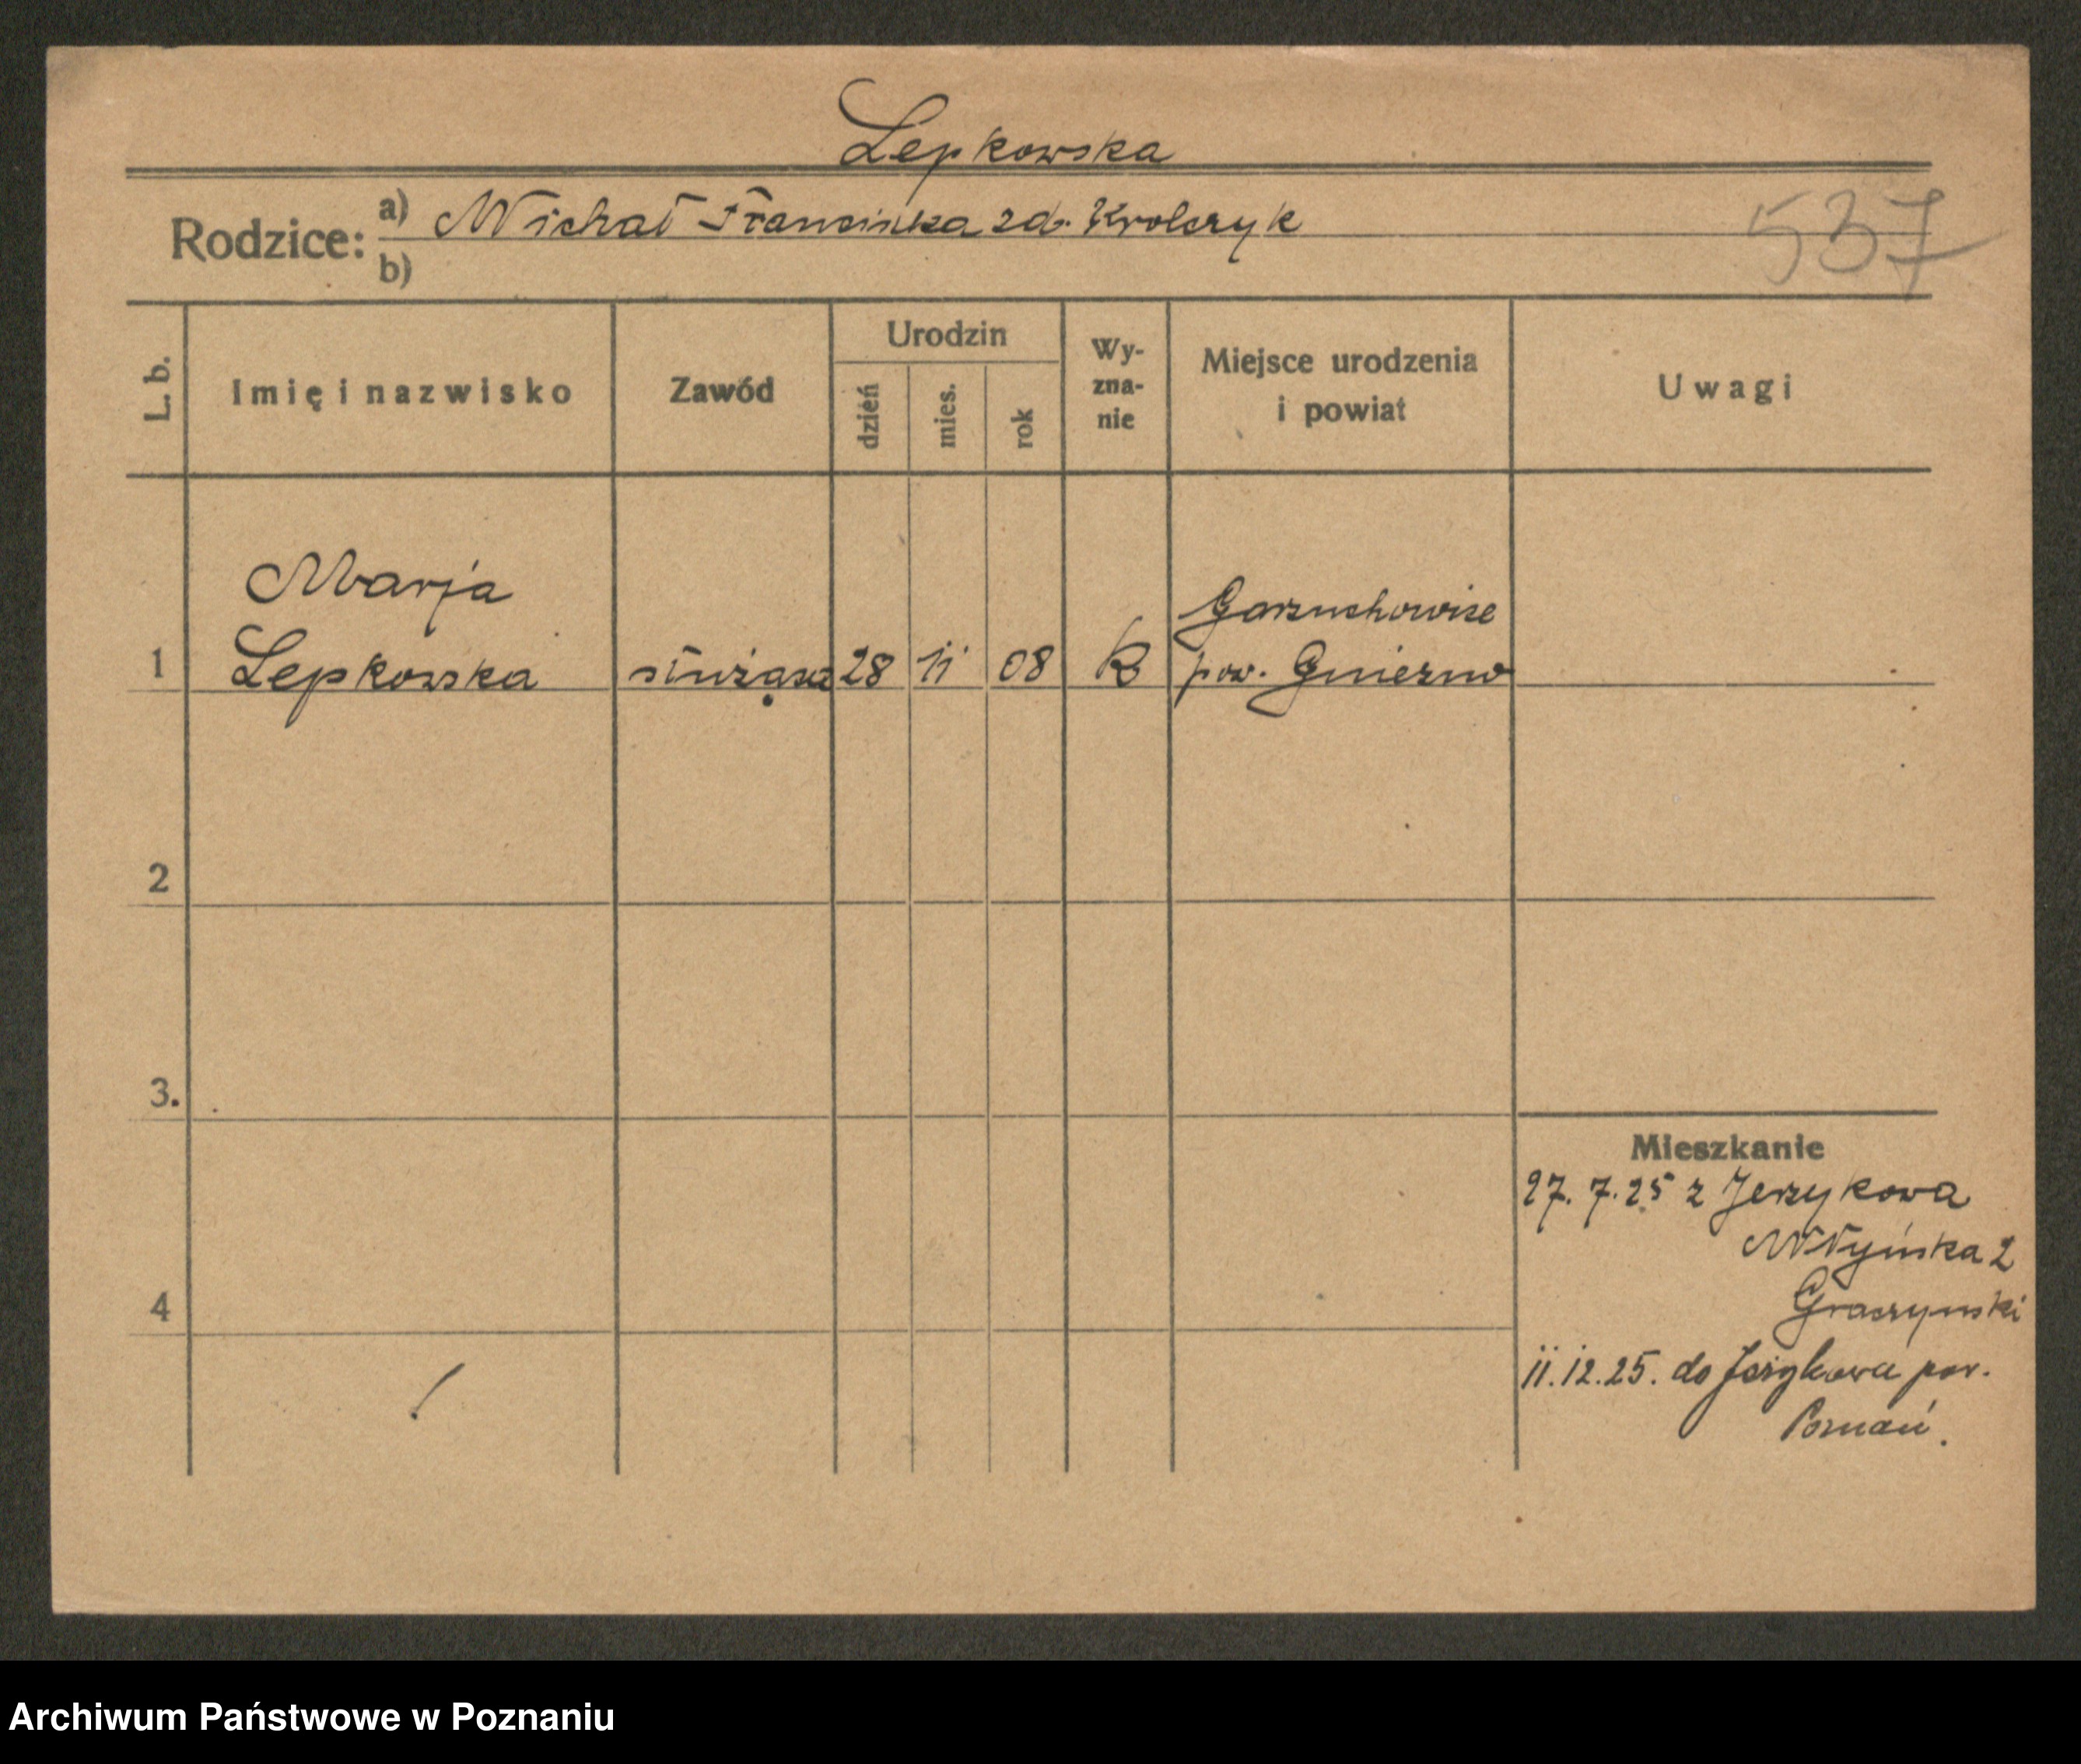 Lepkowska
Rodzice: a) Michał Franciszka zd. Krolczyk
b)
537
L. b.
Imię i nazwisko
Zawód
Urodzin
dzień
mies.
rok
Wy-
zna-
nie
Miejsce urodzenia
i powiat
Uwagi
Marja
Garzuchowize
1 Lepkowska służąca 28 11 08 K pow. Gniezno
2
3.
4
Mieszkanie
27. 7. 25 z Jerzykowa
Młyńska 2
Graczynski
11. 12. 25. do Jerzykowa pow.
Poznań.
Archiwum Państwowe w Poznaniu